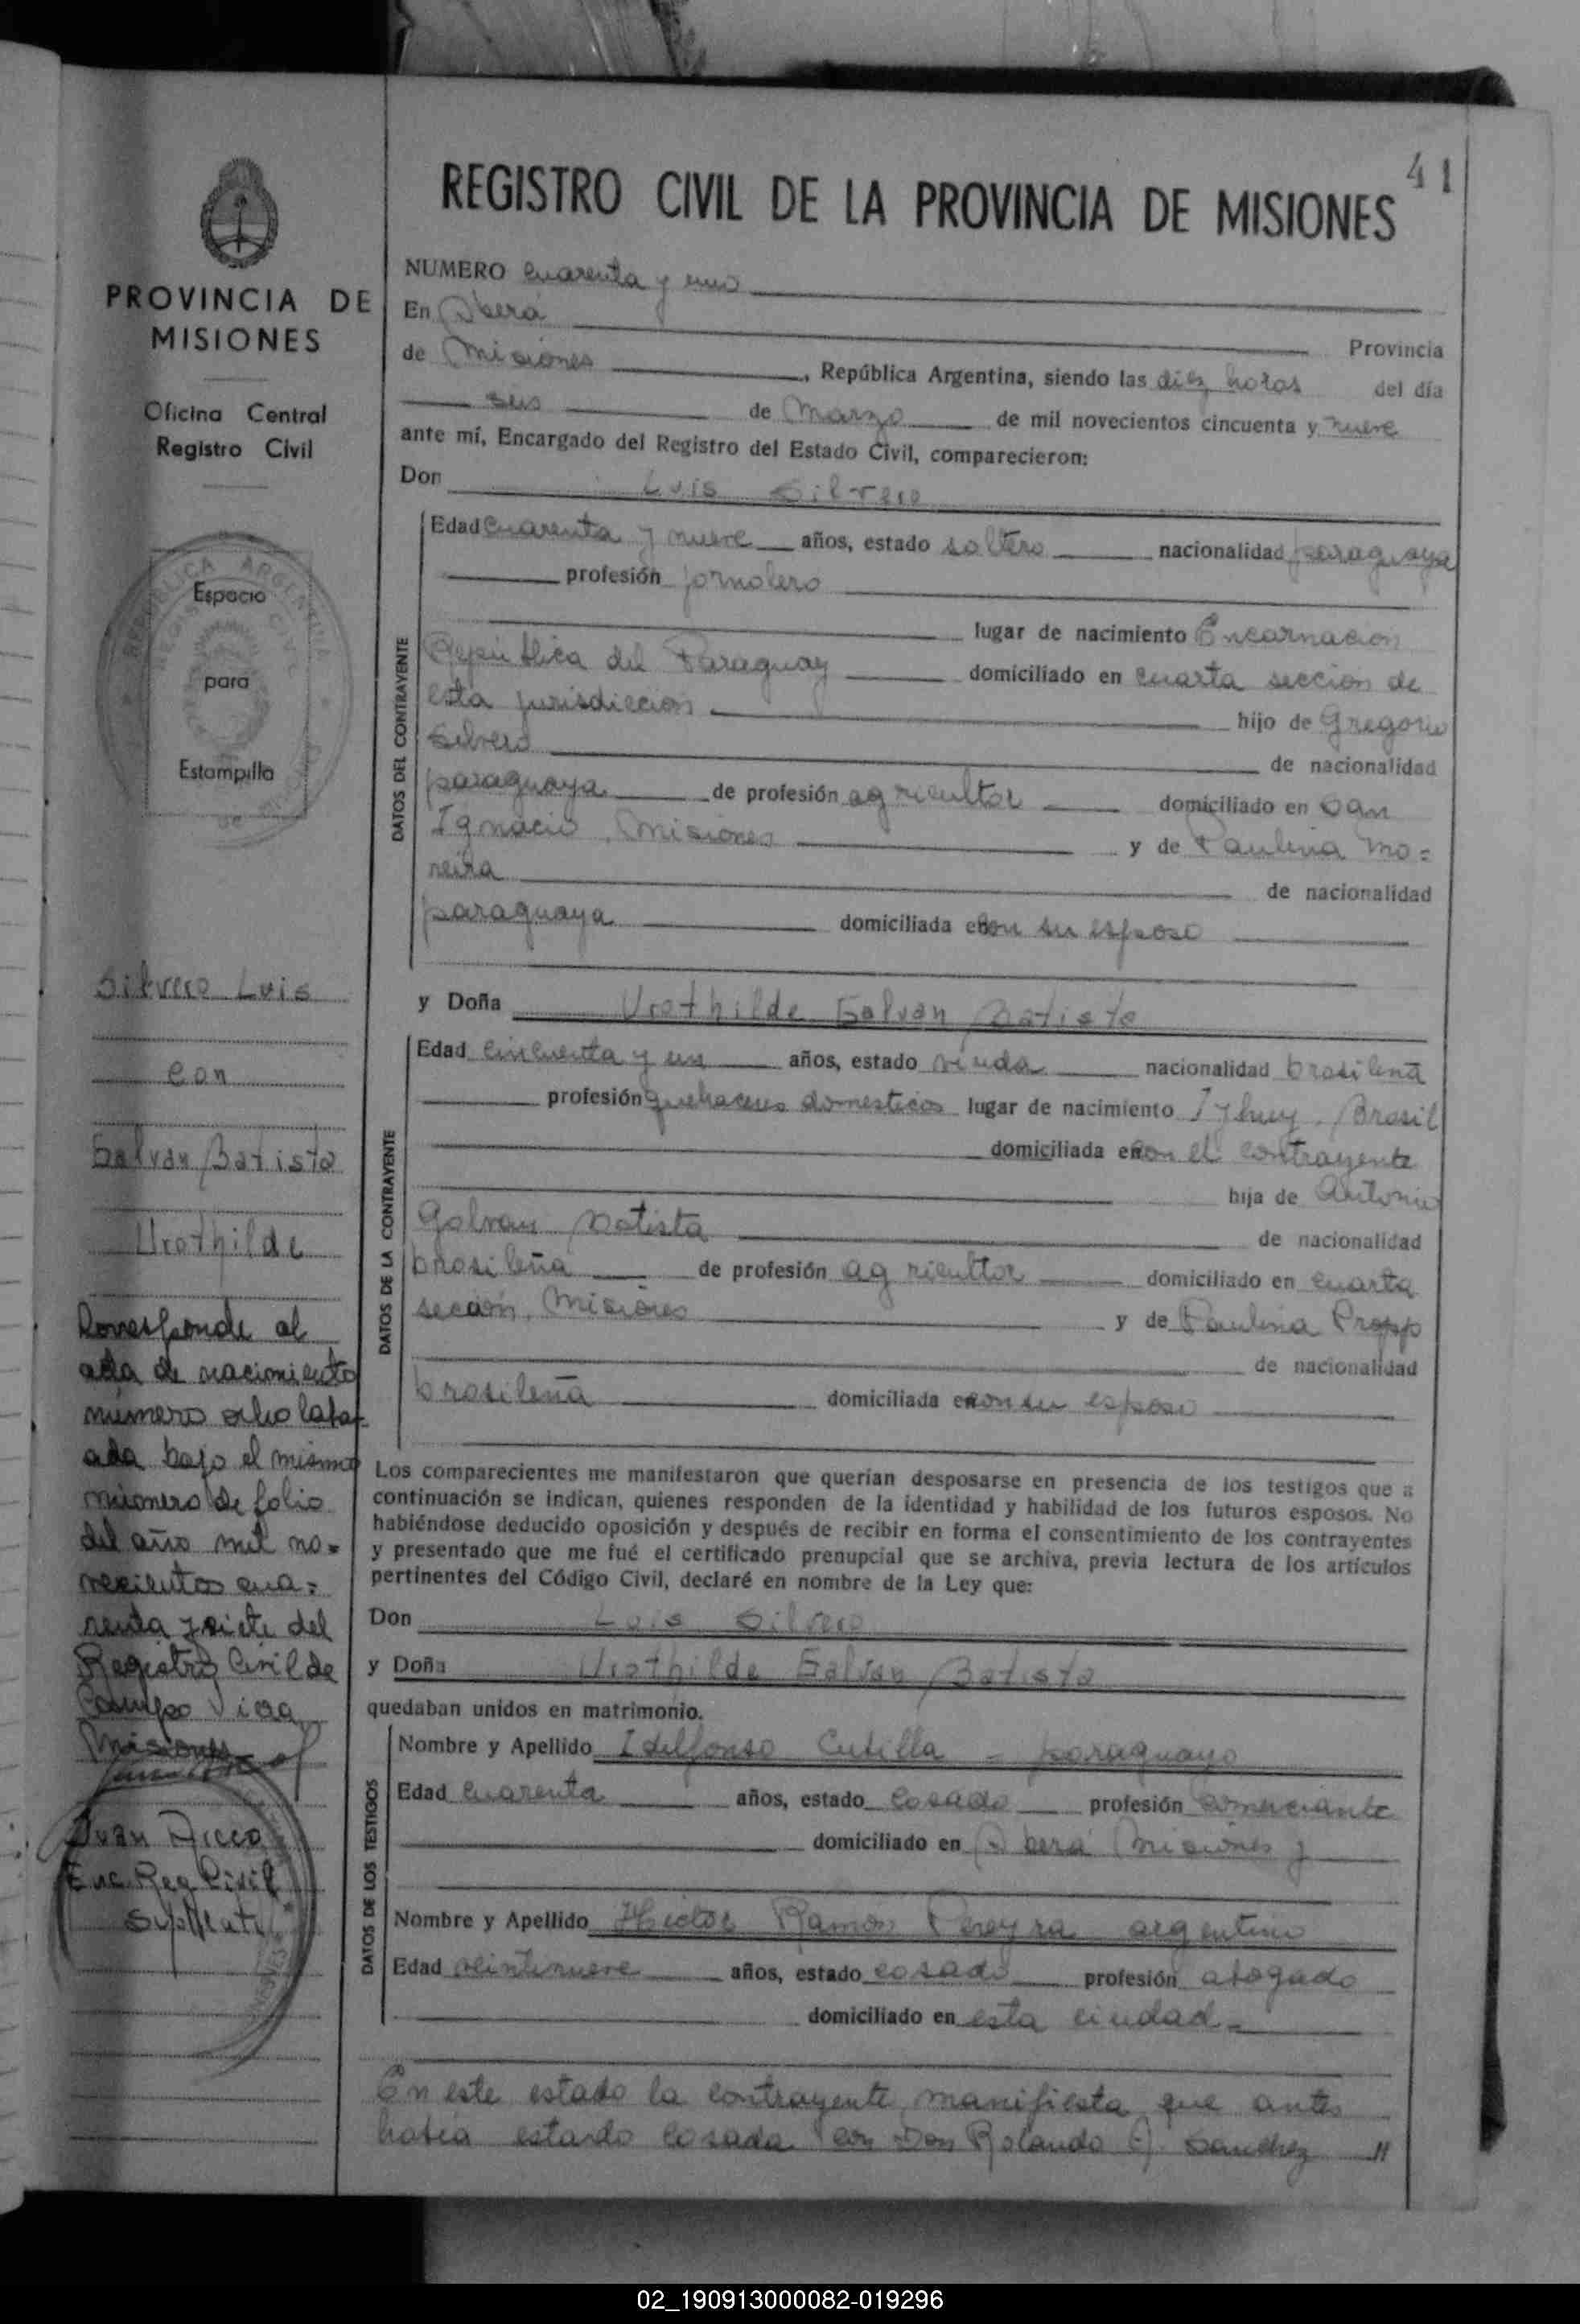 41
REGISTRO CIVIL DE LA PROVINCIA DE MISIONES
PROVINCIA DE
MISIONES
Oficina Central
Registro Civil
Espacio
para
Estampilla
Silvero Luis
con
Galvan Batista
Urothilde
Corresponde al
acta de nacimiento
número ocho labra
ada bajo el mismo
número de folio
del año mil no=
vecientos cua=
renta y siete del
Registro Civil de
Campo Viera
Misiones
Juan
Enc. Reg. Civil
Suplente
NUMERO cuarenta y uno
En Oberá Provincia
de Misiones, República Argentina, siendo las diez horas del día
seis de Marzo de mil novecientos cincuenta y nueve
ante mí, Encargado del Registro del Estado Civil, comparecieron:
Don Luis Silvero
DATOS DEL CONTRAYENTE
Edad cuarenta y nueve años, estado soltero nacionalidad paraguaya
profesión jornalero
lugar de nacimiento Encarnacion
República del Paraguay domiciliado en cuarta seccion de
esta jurisdiccion hijo de Gregorio
Silvero de nacionalidad
paraguaya de profesión agricultor domiciliado en San
Ignacio, Misiones y de Paulina Mo=
reira de nacionalidad
paraguaya domiciliada con su esposo
y Doña Urothilde Galvan Batista
DATOS DE LA CONTRAYENTE
Edad cincuenta y un años, estado viuda nacionalidad brasileña
profesión quehaceres domesticos lugar de nacimiento Yjhuy, Brasil
domiciliada con el contrayente
hija de Antonio
Galvan Batista de nacionalidad
brasileña de profesión agricultor domiciliado en cuarta
sección, Misiones y de Paulina Propp
de nacionalidad
brasileña domiciliada con su esposo
Los comparecientes me manifestaron que querían desposarse en presencia de los testigos que a
continuación se indican, quienes responden de la identidad y habilidad de los futuros esposos. No
habiéndose deducido oposición y después de recibir en forma el consentimiento de los contrayentes
y presentado que me fué el certificado prenupcial que se archiva, previa lectura de los artículos
pertinentes del Código Civil, declaré en nombre de la Ley que:
Don Luis Silvero
y Doña Urothilde Galvan Batista
quedaban unidos en matrimonio.
DATOS DE LOS TESTIGOS
Nombre y Apellido Idelfonso Cubilla - paraguayo
Edad cuarenta años, estado casado profesión comerciante
domiciliado en Oberá Misiones y
Nombre y Apellido Hector Ramon Pereyra argentino
Edad veintinueve años, estado casado profesión abogado
domiciliado en esta ciudad.=
En este estado la contrayente manifiesta que antes
habia estado casada con Don Rolando A. Sanchez //
02_190913000082-019296